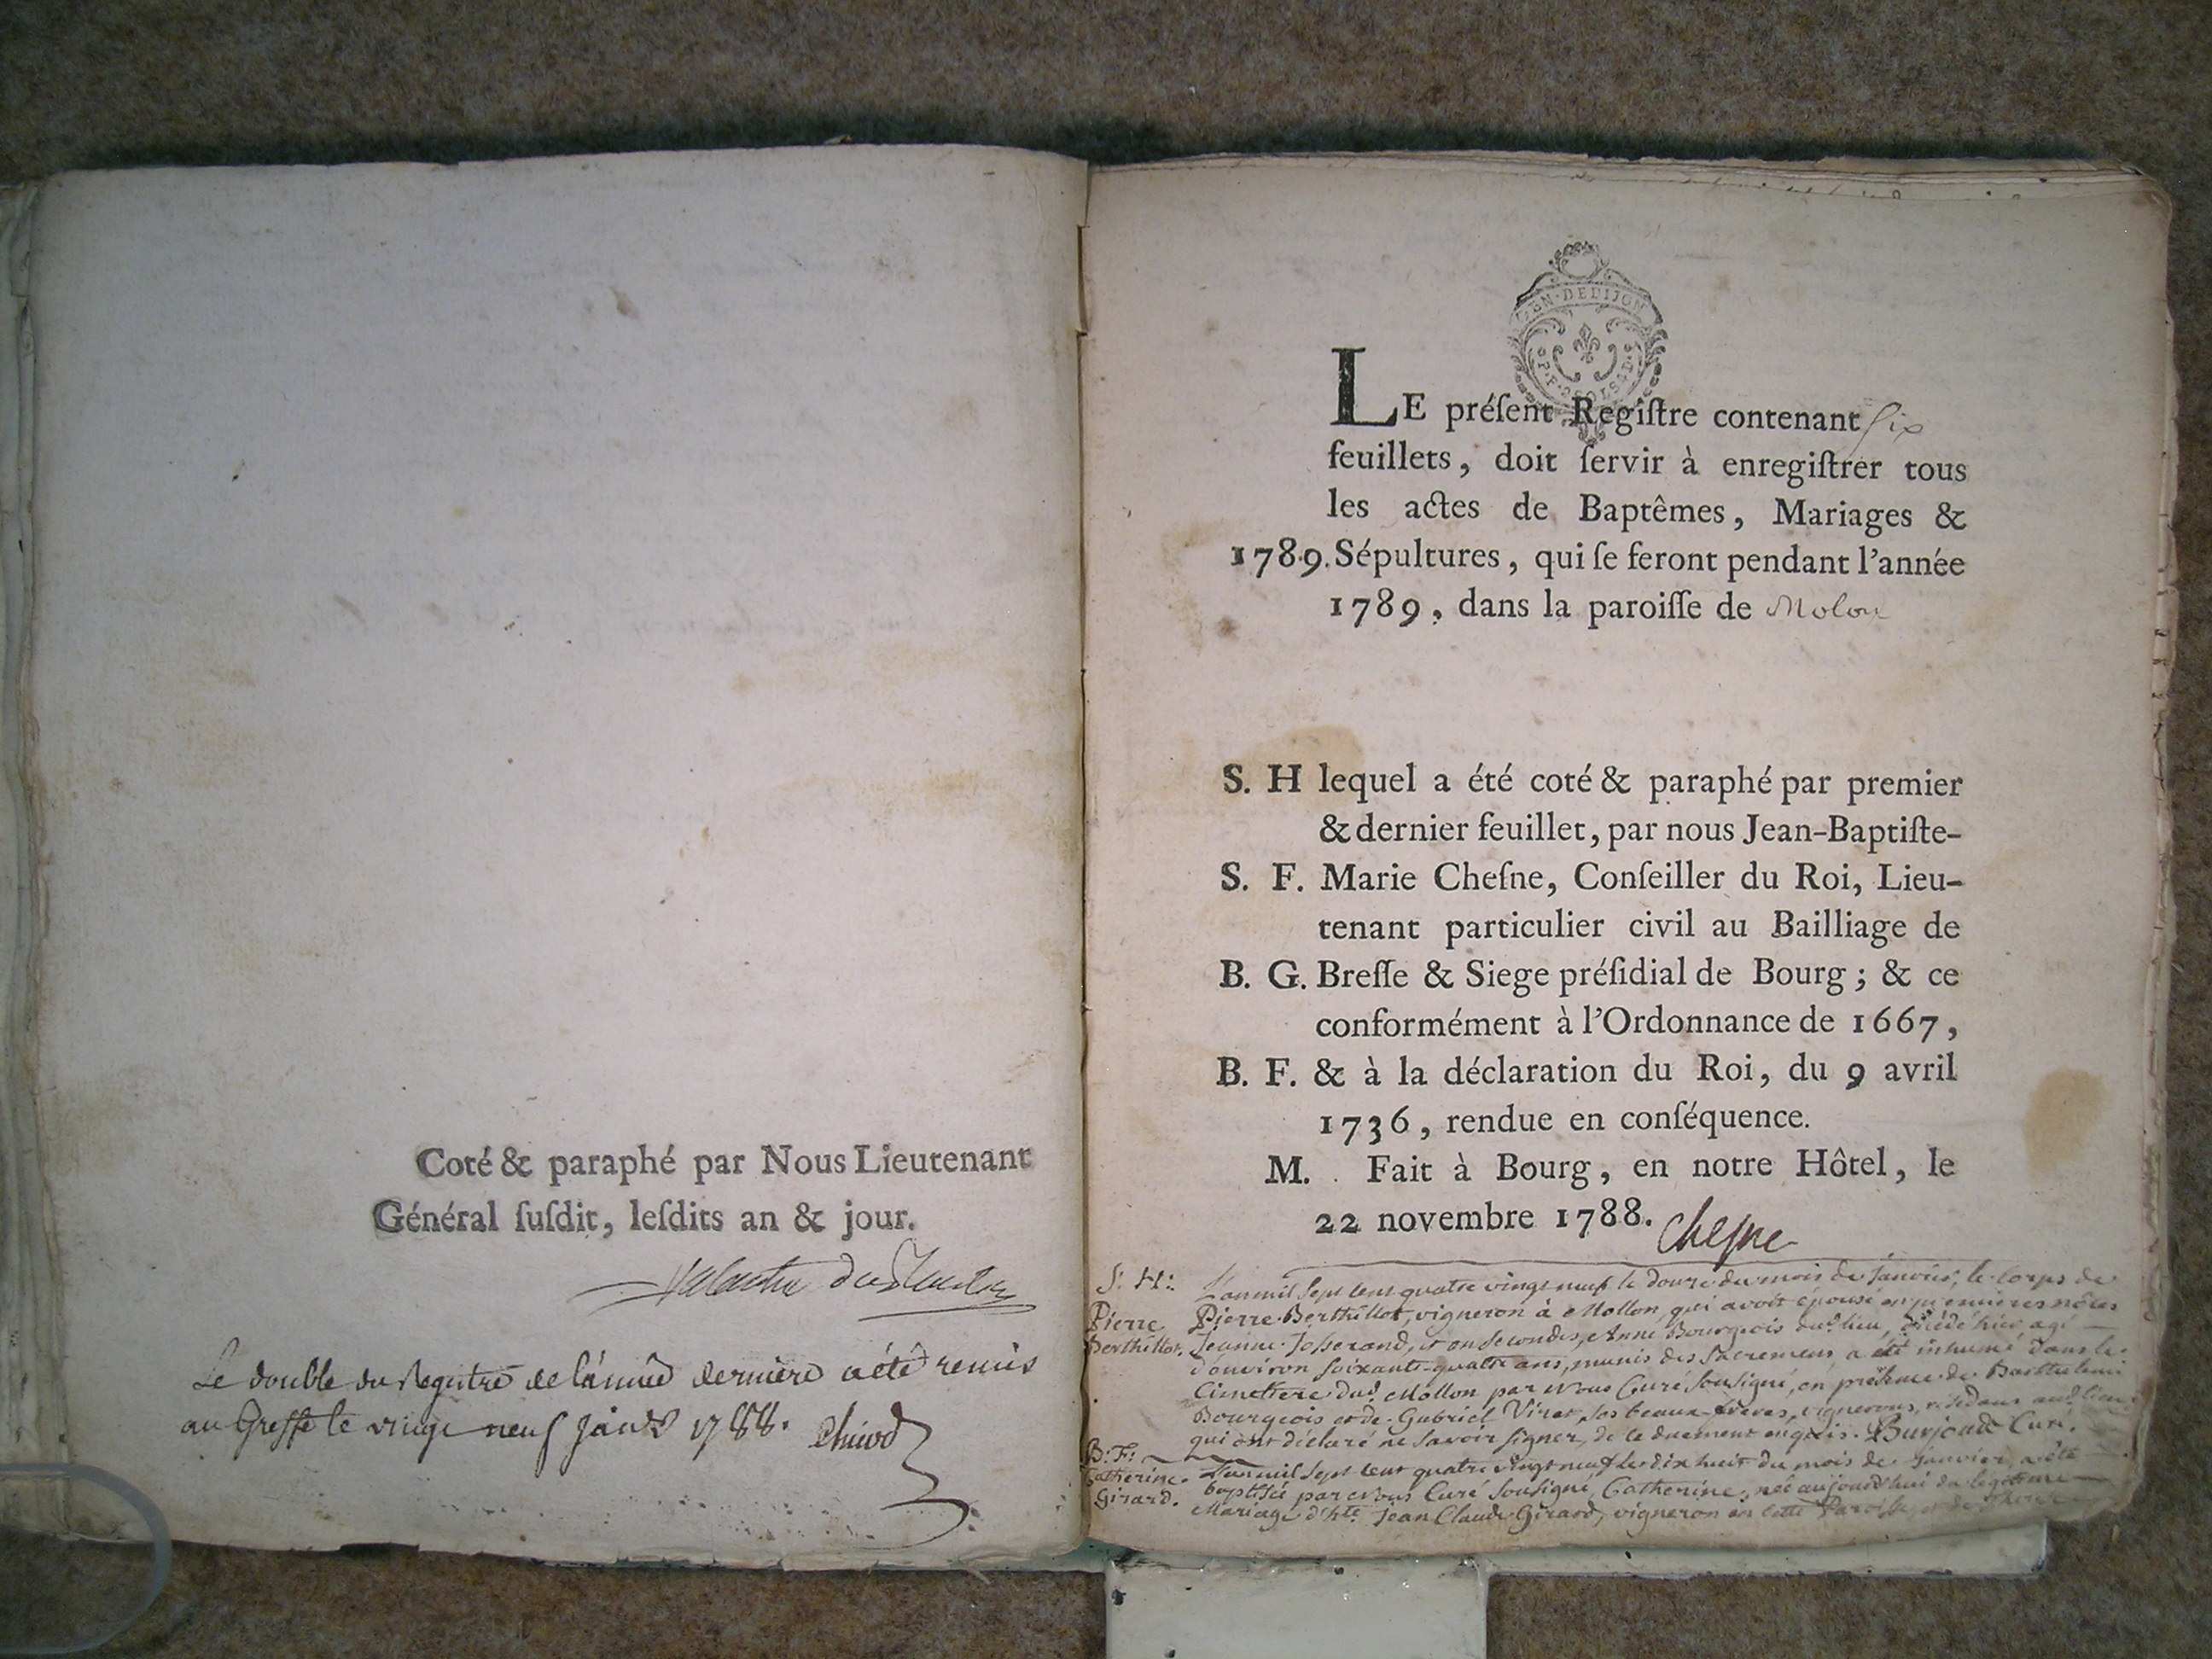 Coté & paraphé par Nous Lieutenant
Général ſuſdit, leſdits an & jour.
Le double du Registre de l'année derniere a été remis
au Greffe le vingt neuf janv 1788.
GEN · DE DIJON
LE préſent Regiſtre contenant Six
feuillets, doit ſervir à enregiſtrer tous
les actes de Baptêmes, Mariages &
1789. Sépultures, qui ſe feront pendant l'année
1789, dans la paroiſſe de Molon
S. H lequel a été coté & paraphé par premier
& dernier feuillet, par nous Jean-Baptiſte-
S. F. Marie Cheſne, Conſeiller du Roi, Lieu-
tenant particulier civil au Bailliage de
B. G. Breſſe & Siege préſidial de Bourg ; & ce
conformément à l'Ordonnance de 1667,
B. F. & à la déclaration du Roi, du 9 avril
1736, rendue en conſéquence.
M. Fait à Bourg, en notre Hôtel, le
22 novembre 1788. Cheſne
S. H. L'an mil sept cent quatre vingt neuf le douze du mois de Janvier, le corps de
Pierre Pierre Berthillot, vigneron à Mollon, qui avoit épousé en premieres nôces
Berthillot. Jeanne Josserand, et en secondes, Anne Bourgeois dud. lieu, décédé hier agé
d'environ soixante-quatre ans, munis des Sacremens, a été inhumé dans le
Cimetiere dud. Mollon par Nous Curé Soussigné, en présence de Barthelemi
Bourgeois et de Gabriel Viret, ses beaux-freres, vignerons, résidans aud. lieu
qui ont déclaré ne savoir signer, de ce duement enquis. Burjoud Curé.
B. F. L'an mil sept cent quatre vingt neuf le dix huit du mois de Janvier, a été
Catherine baptisée par Nous Curé Soussigné, Catherine, née aujourd'hui du légitime
Girard. Mariage d'hte. Jean Claude Girard, vigneron en cette Paroisse et de